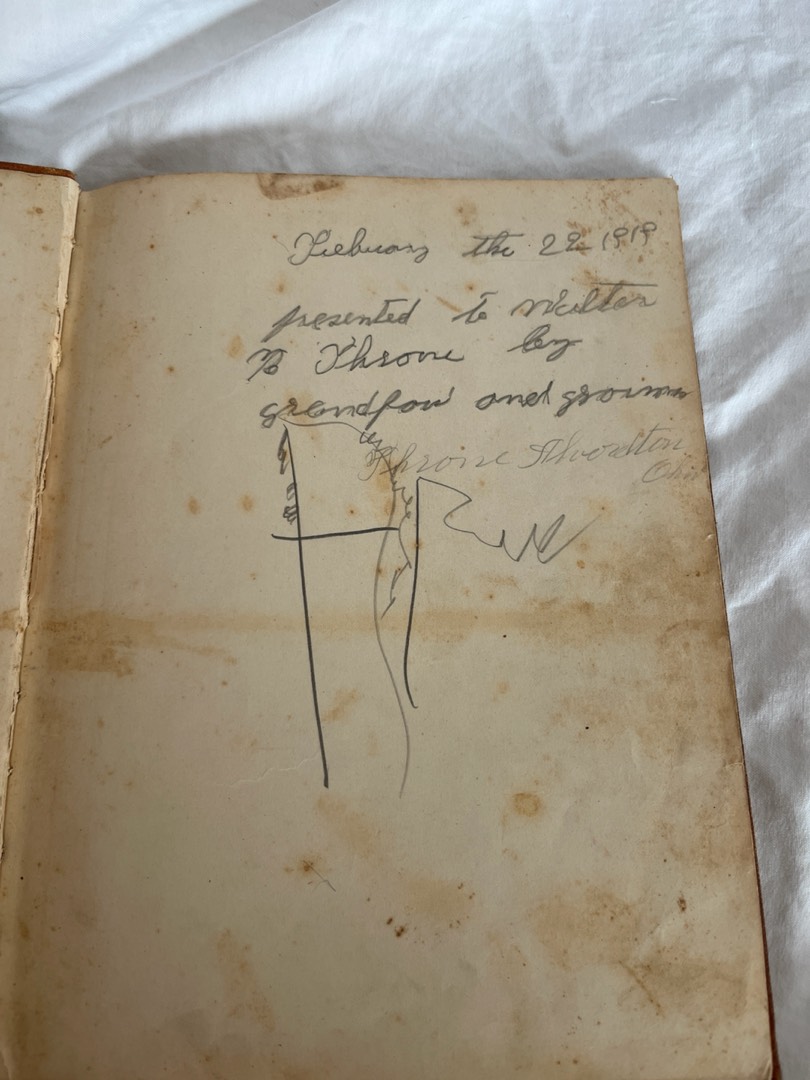 Febuary the 22 1919
presented to Walter
B Throne by
grandpaw and
Throne Alvordton
Ohio